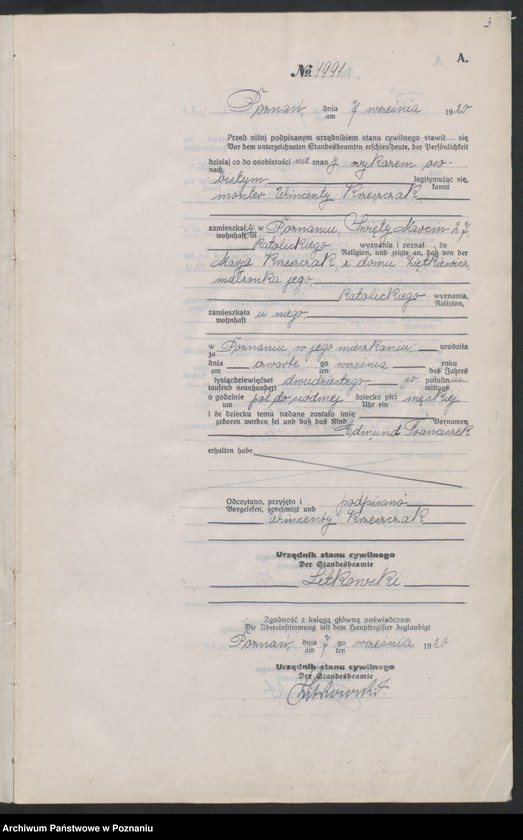 3
A.
№ 1991
Poznań, dnia am 7 września 1920
Przed niżej podpisanym urzędnikiem stanu cywilnego stawił się
Vor dem unterzeichneten Standesbeamten erschien heute, der Persönlichkeit
dzisiaj co do osobistości nie znany wykazem oso-
nach
bistym legitymując się,
kannt
monter Wincenty Krzeszczak,
zamieszkały w Poznaniu, Święty Marcin 27
wohnhaft in
Katolickiego wyznania i zeznał że
Religion, und zeigte an, daß von der
Marja Krzeszczak z domu Ziętkiewicz,
małżonka jego,
Katolickiego wyznania,
Religion,
zamieszkała u niego,
wohnhaft
w Poznaniu, w jego mieszkaniu urodziła
zu
dnia czwartego września roku
am ten des Jahres
tysiącdziewięćset dwudziestego, po południu
tausend neunhundert mittags
o godzinie pół do siódmej dziecko płci męskiej
um Uhr ein
i że dziecku temu nadane zostało imię
geboren worden sei und daß das Kind Vornamen
Edmund Franciszek
erhalten habe
Odczytano, przyjęto i podpisano
Vorgelesen, genehmigt und
Wincenty Krzeszczak
Urzędnik stanu cywilnego
Der Standesbeamte
Litkowski
Zgodność z księgą główną poświadczam
Die Übereinstimmung mit dem Hauptregister beglaubigt
Poznań, dnia 7 go września 1920
am ten
Urzędnik stanu cywilnego
Der Standesbeamte
Archiwum Państwowe w Poznaniu